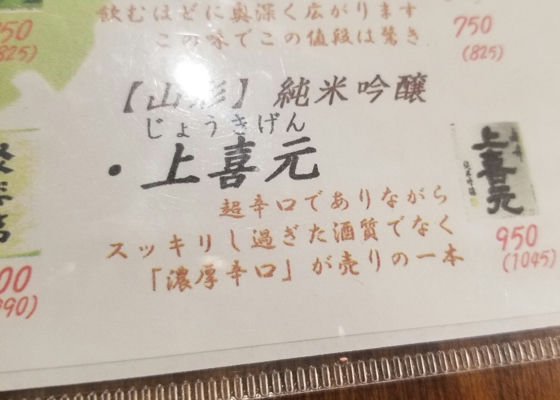 飲むほどに奥深く広がります
この味でこの値段は驚き
750
(825)
【山形】純米吟醸
じょうきげん
・上喜元
超辛口でありながら
スッキリし過ぎた酒質でなく
「濃厚辛口」が売りの一本
上喜元
950
(1045)